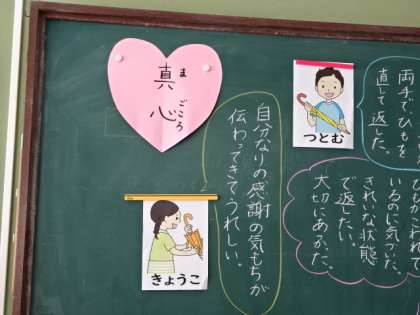 真心
まごころ
つとむ
両手でひもを
直して返した。
いるのに気づいた。
きれいな状態
で返したい。
大切にあつかった。
きょうこ
自分なりの感謝の気もちが
伝わってきてうれしい。